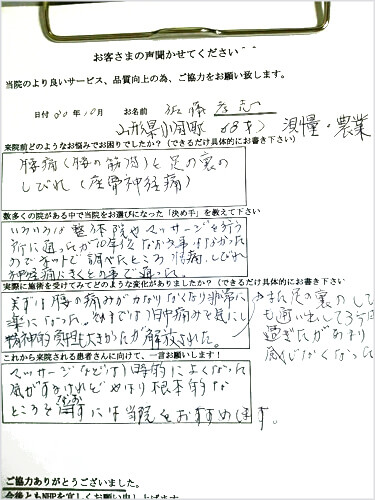 お客さまの声聞かせてください
当院のより良いサービス、品質向上の為、ご協力をお願い致します。
日付 30年10月 お名前 佐藤
山形県小国町 68才 測量・農業
来院前どのようなお悩みでお困りでしたか?(できるだけ具体的にお書き下さい)
腰痛(腰の筋肉)と足の裏の
しびれ(座骨神経痛)
数多くの院がある中で当院をお選びになった「決め手」を教えて下さい
いろいろな整体院やマッサージを行う
所に通ったが10年位なおる事はなかった
のでネットで調べたところ腰痛、しびれ
神経痛にきくとの事で通った。
実際に施術を受けてみてどのような変化がありましたか?(できるだけ具体的にお書き下さい)
まずは腰の痛みがかなりなくなり非常に
楽になった。今までは1日中痛みを気にし
精神的負担も大きかったが解放された。
また足の裏のしび
も通い出して3ケ月
過ぎたがあまり
感じなくなった
これから来院される患者さんに向けて、一言お願いします!
マッサージなどは一時的によくなった
気がするけれどやはり根本的な
ところを治すには当院をおすすめします。
ご協力ありがとうございました。
今後ともNHPを宜しくお願い申し上げます。